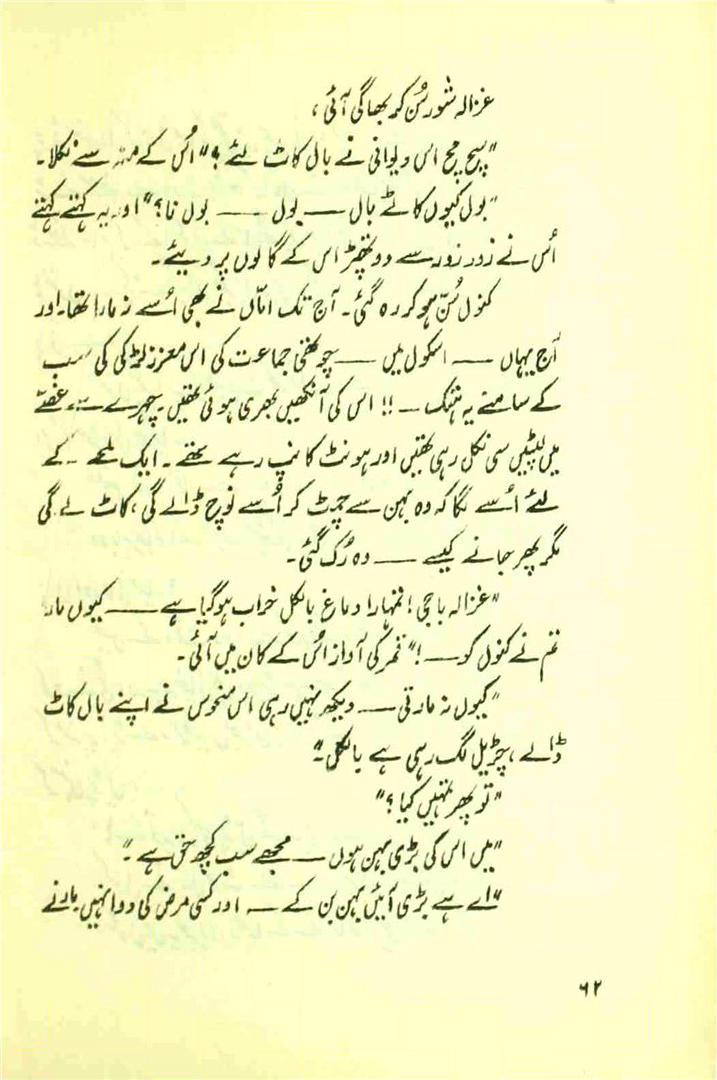 غزالہ شور سُن کر بھاگی آئی،
"سچ مچ اس دیوانی نے بال کاٹ لئے؟" اُس کے منہ سے نکلا۔
"بول کیوں کاٹے بال —— بول —— بول نا؟" اور یہ کہتے کہتے
اُس نے زور زور سے دو تھپڑ اس کے گالوں پر دیئے۔
کنول سُن ہو کر رہ گئی۔ آج تک امّاں نے بھی اُسے نہ مارا تھا۔ اور
آج یہاں —— اسکول میں —— چوتھی جماعت کی اس معزز لڑکی کی سب
کے سامنے یہ ہتک —!! اس کی آنکھیں بھری ہوئی تھیں۔ چہرے سے غصّے
میں لپٹیں سی نکل رہی تھیں اور ہونٹ کانپ رہے تھے۔ ایک لمحے کے
لئے اُسے لگا کہ وہ بہن سے چمٹ کر اُسے نوچ ڈالے گی، کاٹ لے گی
مگر پھر جانے کیسے —— وہ رُک گئی۔
"غزالہ باجی! تمہارا دماغ بالکل خراب ہو گیا ہے —— کیوں مارا
تم نے کنول کو ——!" قمر کی آواز اُس کے کان میں آئی۔
"کیوں نہ مارتی —— دیکھ نہیں رہی اس منحوس نے اپنے بال کاٹ
ڈالے، چڑیل لگ رہی ہے بالکل۔"
"تو پھر تمہیں کیا؟"
"میں اس کی بڑی بہن ہوں —— مجھے سب کچھ حق ہے۔"
"اے ہے بڑی آئیں بہن بن کے —— اور کسی مرض کی دوا نہیں مارنے
۶۲